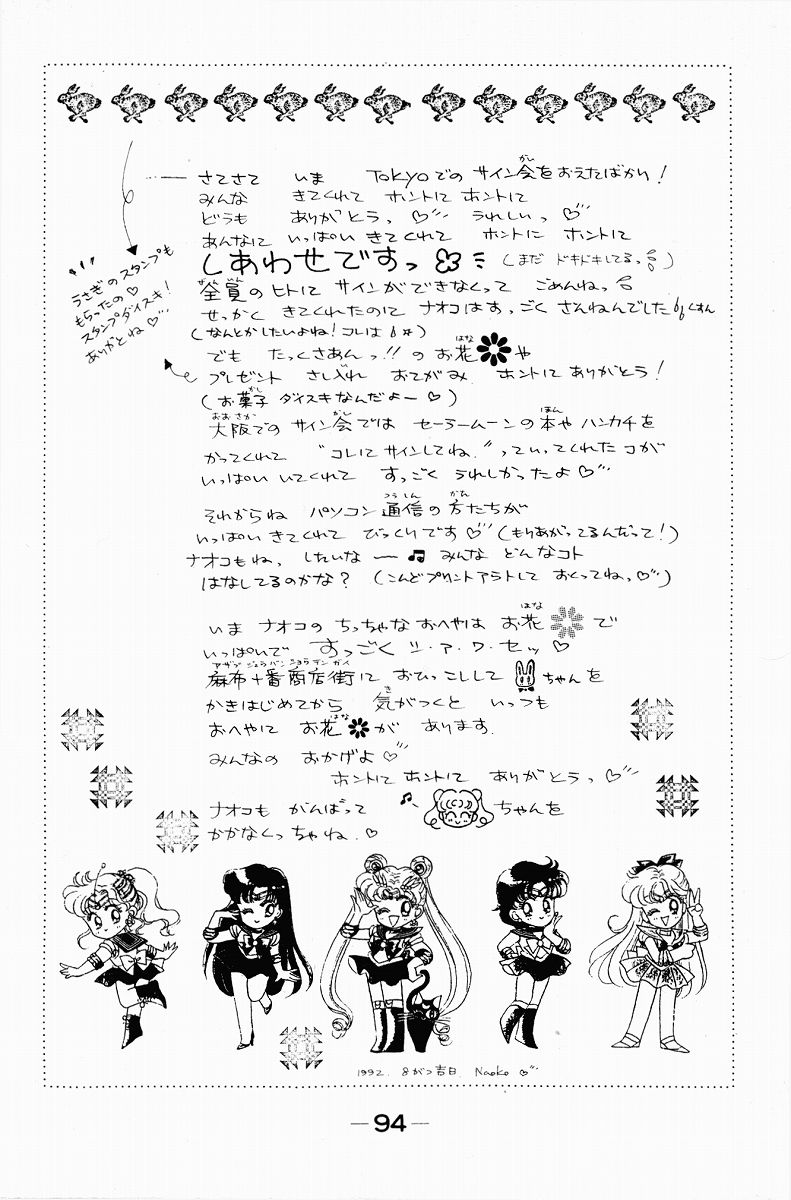 さてさて いま Tokyoでの サイン会をおえたばかり!
みんな きてくれて ホントに ホントに
どうも ありがとうっ♡ うれしいっ♡
あんなに いっぱい きてくれて ホントに ホントに
しあわせですっ (まだ ドキドキしてるっ)
全員のヒトに サインができなくって ごめんねっ
せっかく きてくれたのに ナオコはすっごく ざんねんでした くすん
(なんとかしたいよね! コレは)
でも たっくさあんっ!! の お花や
プレゼント さし入れ おてがみ ホントに ありがとう!
(お菓子 ダイスキなんだよー♡)
大阪での サイン会では セーラームーンの本や ハンカチを
かってくれて "コレにサインしてね。"っていってくれたコが
いっぱい いてくれて すっごく うれしかったよ♡
それからね パソコン通信の 方たちが
いっぱい きてくれて びっくりです♡ (もりあがってるんだって!)
ナオコもね、したいな ー ♫ みんな どんなコト
はなしてるのかな? (こんどプリントアウトして おくってねっ♡)
いま ナオコの ちっちゃな おへやは お花で
いっぱいで すっごく シ・ア・ワ・セッ♡
麻布十番商店街に おひっこしして ちゃんを
かきはじめてから 気がつくと いっつも
おへやに お花が あります。
みんなの おかげよ♡
ホントに ホントに ありがとうっ♡
ナオコも がんばって ♪ ちゃんを
かかなくっちゃね。♡
うさぎのスタンプも
もらったの♡
スタンプダイスキ!
ありがとね♡
1992. 8がつ吉日. Naoko ♡
— 94 —